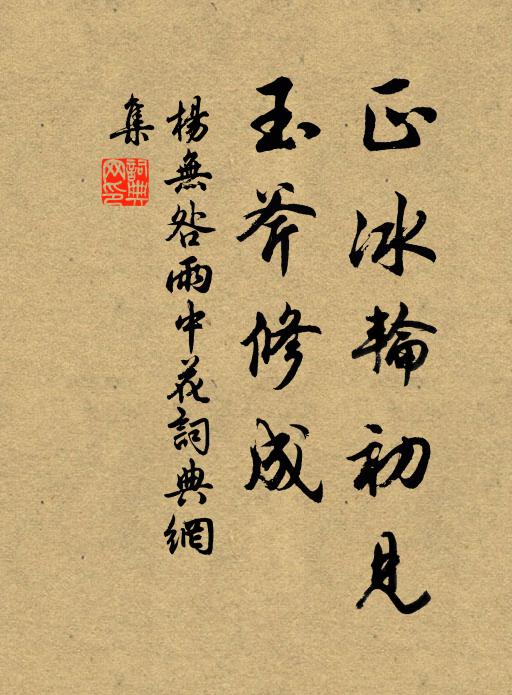 正冰輪初見
玉斧修成
楊無咎雨中花詞典網
集
詞典
网印